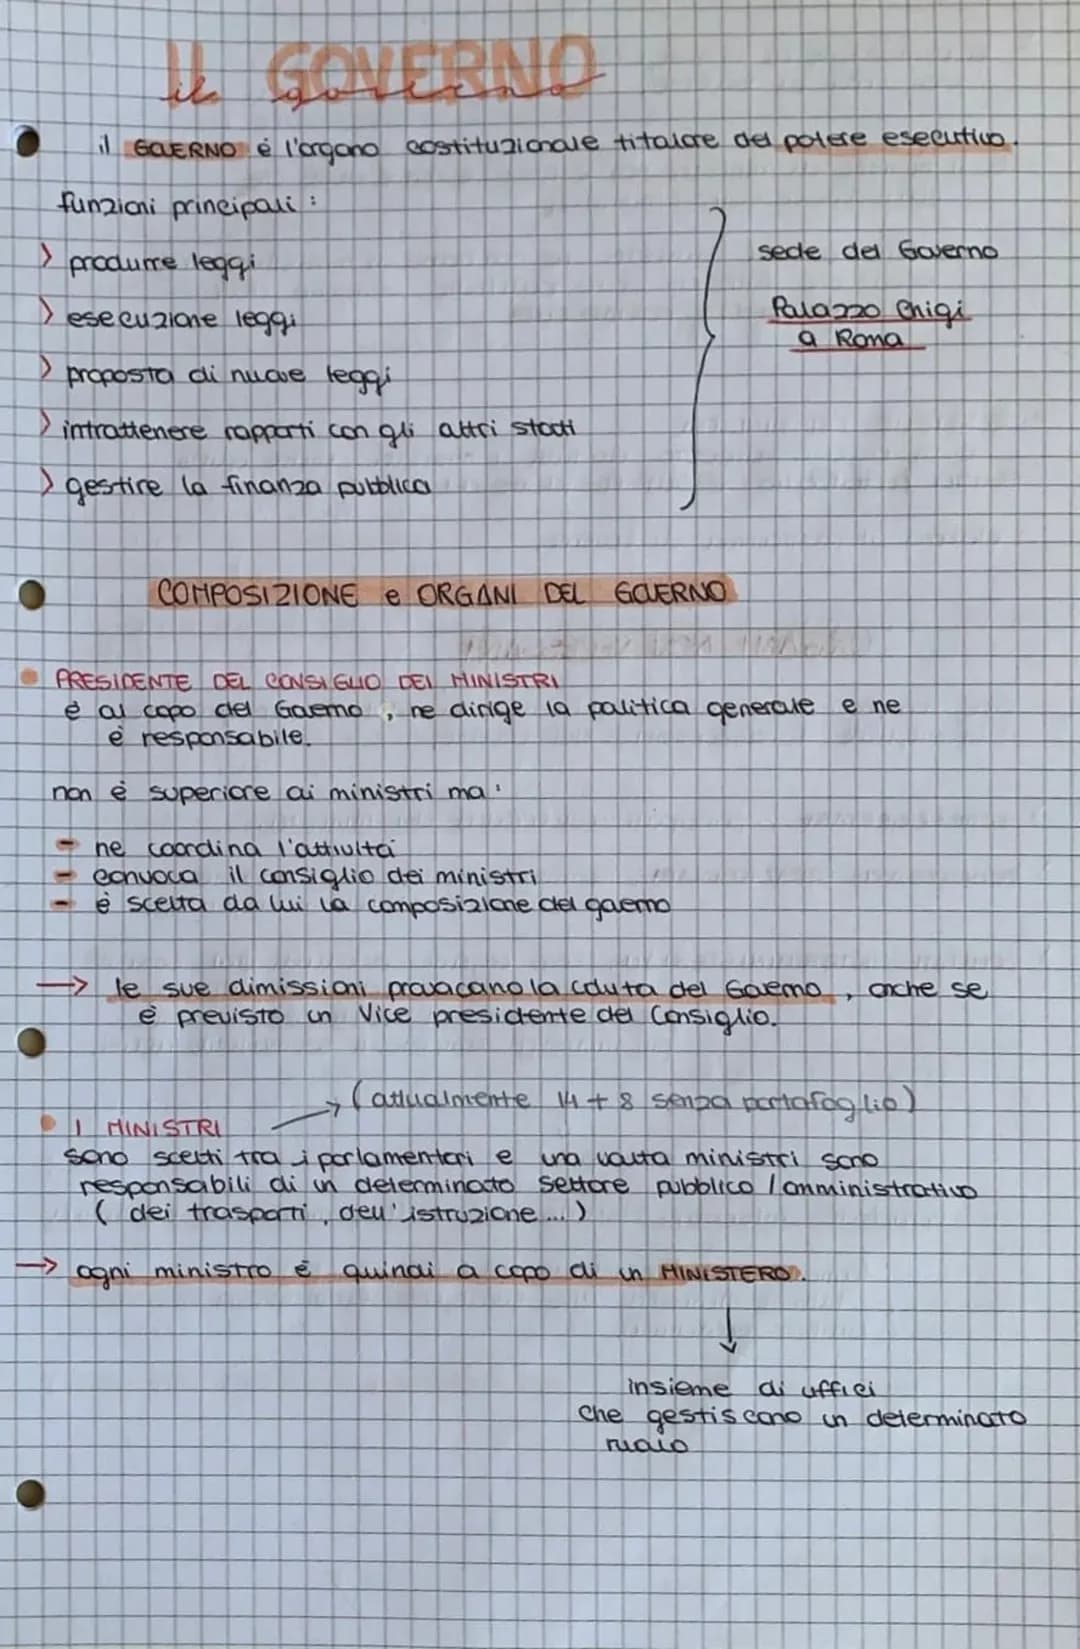 il GOVERNO
il GOVERNO é l'organo costituzionale titolare del potere esecutivo.
funzioni principali :
> produrre leggi
> esecuzione leggi
> proposta di nuove leggi
> intrattenere rapporti con gli altri stati
> gestire la finanza pubblica
sede del Governo
Palazzo Chigi
a Roma
COMPOSIZIONE e ORGANI DEL GOVERNO
PRESIDENTE DEL CONSIGLIO DEI MINISTRI
é al capo del Governo, ne dirige la politica generale e ne
é responsabile.
non é superiore ai ministri ma :
- ne coordina l'attività
- convoca il consiglio dei ministri
- é scelta da lui la composizione del governo
→ le sue dimissioni provocano la caduta del Governo, anche se
é previsto un Vice presidente del Consiglio.
→ (attualmente 14 + 8 senza portafoglio)
I MINISTRI
sono scelti tra i parlamentari e una volta ministri sono
responsabili di un determinato settore pubblico / amministrativo
( dei trasporti, dell'istruzione ... )
→ ogni ministro é quindi a capo di un MINISTERO.
↓
insieme di uffici
che gestiscono un determinato
ruolo